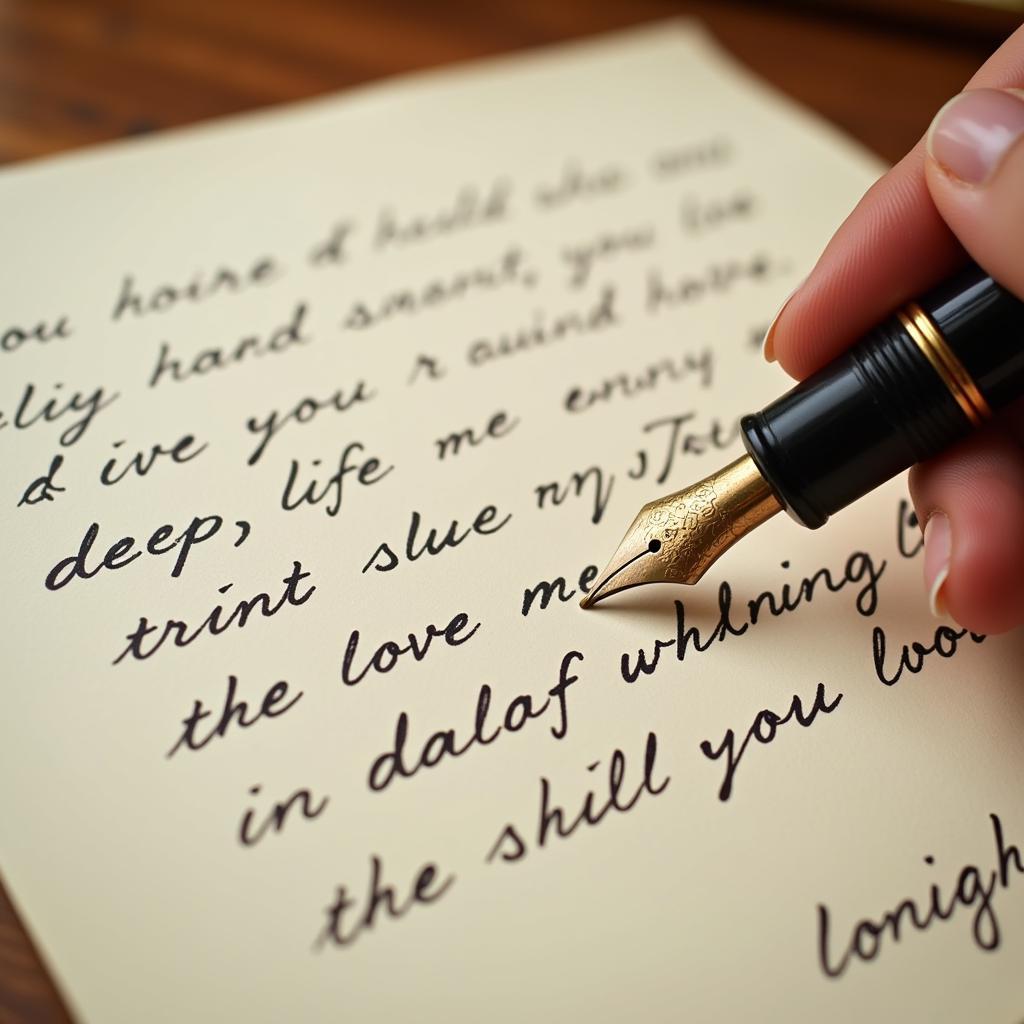 ou hoire d heald she and
eliy hand smamt, you loe
d ive you r auind hove.
deep, life me enuny
trint slue
the love me
in dalaf whlning
the shill you
lonigh